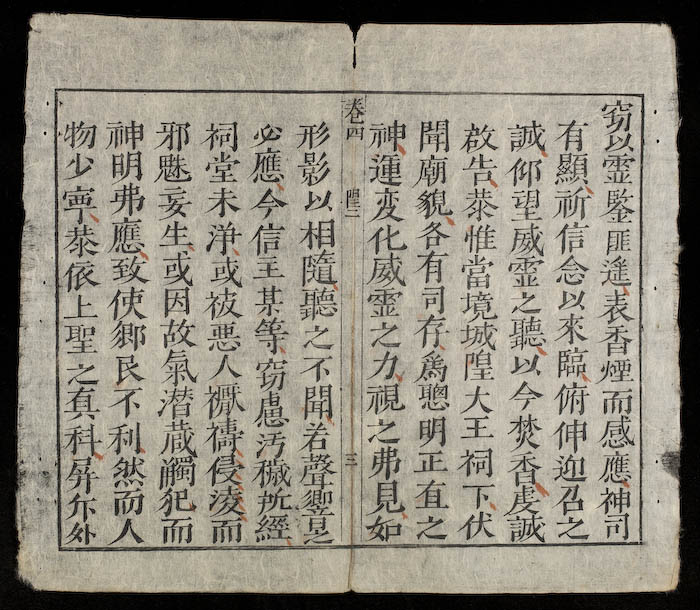 窃以霊鑒匪遥表香煙而感應神司
有顯祈信念以来臨俯伸迎召之
誠仰望威霊之聽以今焚香虔誠
啟告恭惟當境城隍大王祠下伏
聞廟貌各有司存為聰明正直之
神運变化威霊之力視之弗見如
卷四 隍二 三
形影以相隨聽之不聞若聲響之
必應今信士某等窃慮汚穢所經
祠堂未浄或被悪人禳禱侵凌而
邪魅妄生或因故氣潜蔵觸犯而
神明弗應致使鄉民不利然而人
物少寧恭依上聖之真科屏斥外